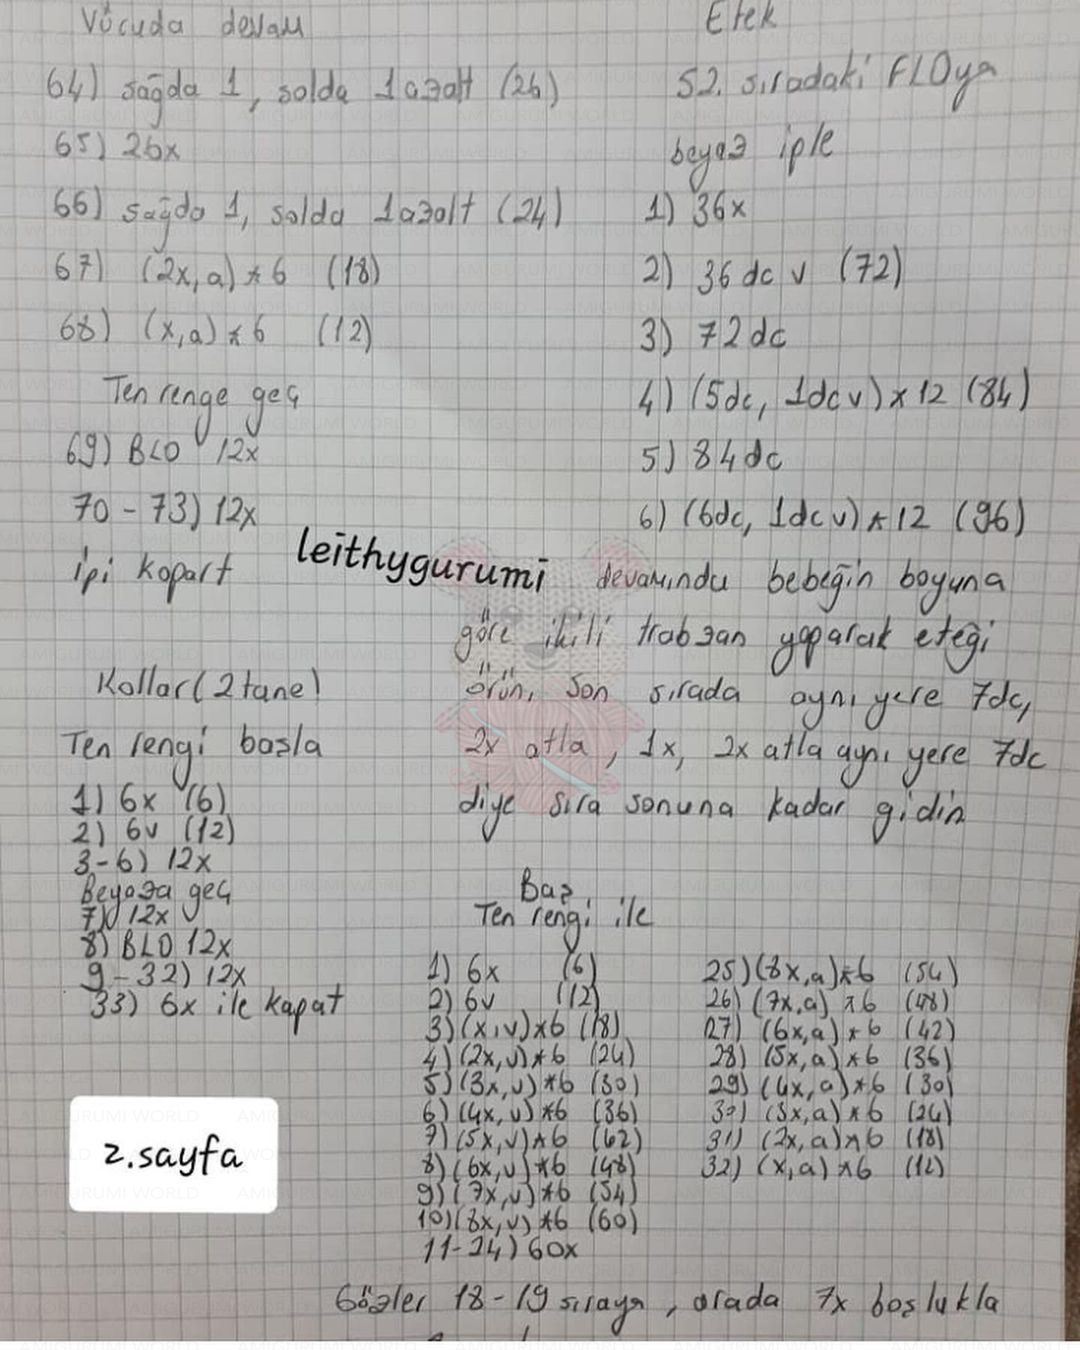 Vücuda devam
64) sağda 1, solda 1 azalt (26)
65) 26x
66) sağda 1, solda 1 azalt (24)
67) (2x, a) * 6 (18)
68) (x, a) * 6 (12)
Ten renge geç
69) BLO 12x
70 - 73) 12x
ipi kopart
leithygurumi
Kollar (2 tane)
Ten rengi başla
1) 6x (6)
2) 6v (12)
3-6) 12x
Beyaza geç
7) 12x
8) BLO 12x
9-32) 12x
33) 6x ile kapat
2.sayfa
Etek
52. sıradaki FLOya
beyaz iple
1) 36x
2) 36 dc v (72)
3) 72 dc
4) (5dc, 1dc v) x 12 (84)
5) 84 dc
6) (6dc, 1dc v) * 12 (96)
devamında bebeğin boyuna
göre ikili trabzan yaparak eteği
örün, son sırada aynı yere 7dc,
2x atla, 1x, 2x atla aynı yere 7dc
diye sıra sonuna kadar gidin
Baş
Ten rengi ile
1) 6x (6)
2) 6v (12)
3) (x, v) x 6 (18)
4) (2x, v) * 6 (24)
5) (3x, v) * 6 (30)
6) (4x, v) * 6 (36)
7) (5x, v) * 6 (42)
8) (6x, v) * 6 (48)
9) (7x, v) * 6 (54)
10) (8x, v) * 6 (60)
11-24) 60x
25) (8x, a) * 6 (54)
26) (7x, a) * 6 (48)
27) (6x, a) * 6 (42)
28) (5x, a) * 6 (36)
29) (4x, a) * 6 (30)
30) (3x, a) * 6 (24)
31) (2x, a) * 6 (18)
32) (x, a) * 6 (12)
Gözler 18-19 sıraya, arada 7x boşlukla